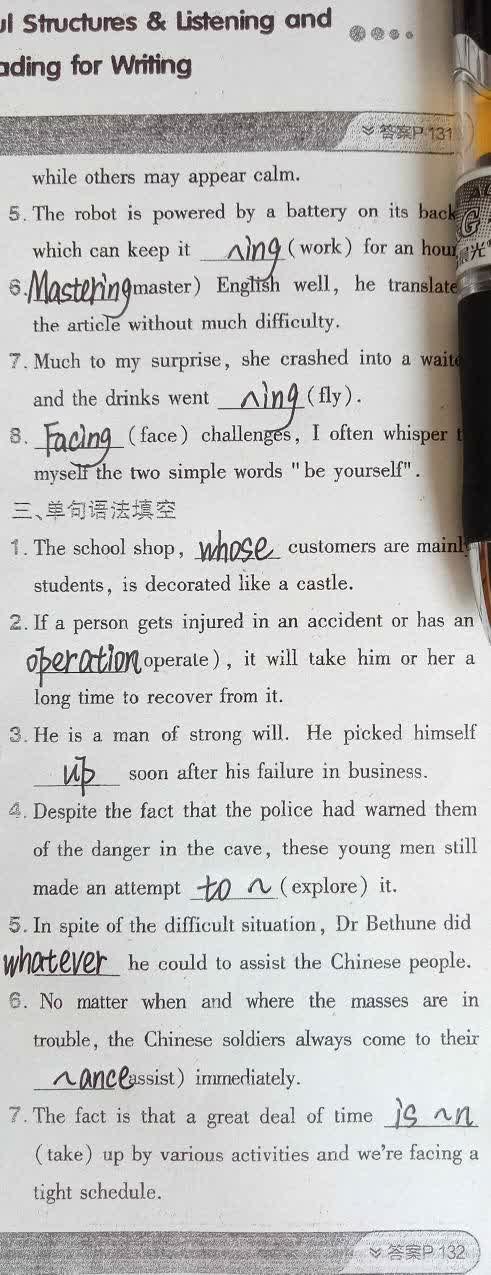 ul Structures & Listening and
ading for Writing
答案P 131
while others may appear calm.
5. The robot is powered by a battery on its back
which can keep it ~ing (work) for an hour
6. Mastering (master) English well, he translate
the article without much difficulty.
7. Much to my surprise, she crashed into a waite
and the drinks went ~ing (fly).
8. Facing (face) challenges, I often whisper t
myself the two simple words "be yourself".
三、单句语法填空
1. The school shop, whose customers are mainly
students, is decorated like a castle.
2. If a person gets injured in an accident or has an
operation operate), it will take him or her a
long time to recover from it.
3. He is a man of strong will. He picked himself
up soon after his failure in business.
4. Despite the fact that the police had warned them
of the danger in the cave, these young men still
made an attempt to ~ (explore) it.
5. In spite of the difficult situation, Dr Bethune did
whatever he could to assist the Chinese people.
6. No matter when and where the masses are in
trouble, the Chinese soldiers always come to their
~ance assist) immediately.
7. The fact is that a great deal of time is ~n
(take) up by various activities and we're facing a
tight schedule.
答案P 132